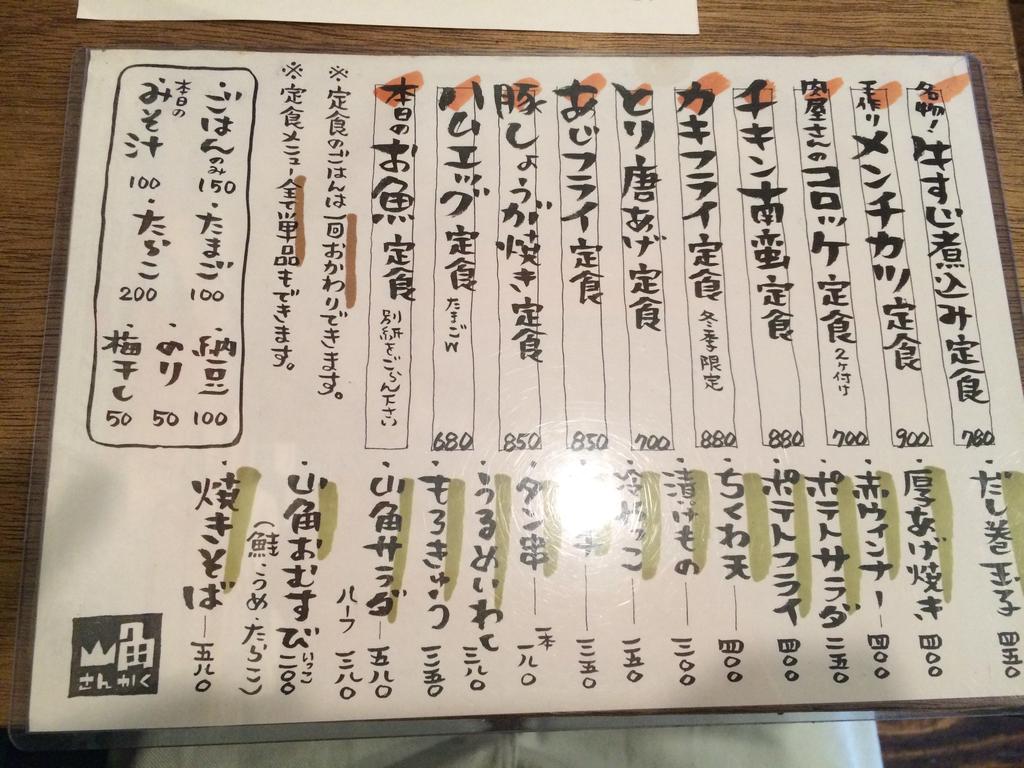 名物！牛すじ煮込み定食 780
手作りメンチカツ定食 900
肉屋さんのコロッケ定食 2ヶ付け 700
チキン南蛮定食 880
カキフライ定食 冬季限定 880
とり唐あげ定食 700
あじフライ定食 850
豚しょうが焼き定食 850
ハムエッグ定食 たまごW 680
本日のお魚定食 別紙をごらん下さい
※定食のごはんは一回おかわりできます。
※定食メニュー全て単品もできます。
・ごはんのみ 150 ・たまご 100 ・納豆 100
本日のみそ汁 100 ・たらこ 200 ・のり 50
・梅干し 50
・だし巻玉子 四五〇
・厚あげ焼き 四〇〇
・赤ウィンナー 四〇〇
・ポテトサラダ 二五〇
・ポテトフライ 四〇〇
・ちくわ天 四〇〇
・漬けもの 三〇〇
・冷やっこ 二五〇
三五〇
・タン串 一本 一八〇
・うるめいわし 三八〇
・もろきゅう 三五〇
・山角サラダ 五八〇
ハーフ 三八〇
・山角おむすび いっこ 二〇〇
（鮭・うめ・たらこ）
・焼きそば 五八〇
山角
さんかく